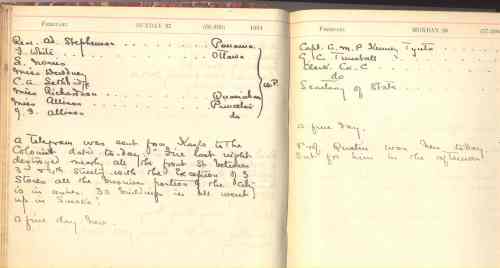 February SUNDAY 25 (56-310) 1894
Rev. A. Stephenson Panama
J. White Ottawa
S. Norris
Miss
C. A.
Miss Richardson
Miss Allison Princeton
J. F. Allison do
W.P.
A Telegram was sent from Kaslo to the
Colonist dated to-day. Fire last night
destroyed nearly all the front St between
3rd & 4th Streets with the exception of 3
Stores all the business portion of the City
is in ashes. 30 buildings in all went
up in smoke!
A fine day here.
February MONDAY 26
Capt. C. M. P.
G. C. Tunstall
Clerk Ex. C
do
Secretary of State
A fine day.
was here to-day.
for him in the afternoon